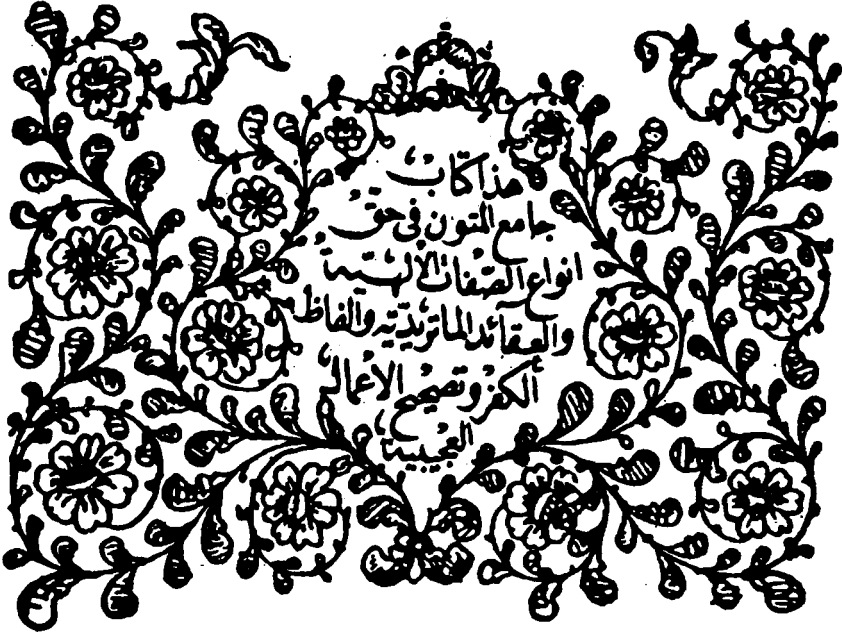 هذا كتاب
جامع المتون فى حق
انواع الصفات الالهية
والعقائد الماتريدية والفاظ
الكفر وتصحيح الاعمال
العجيبية